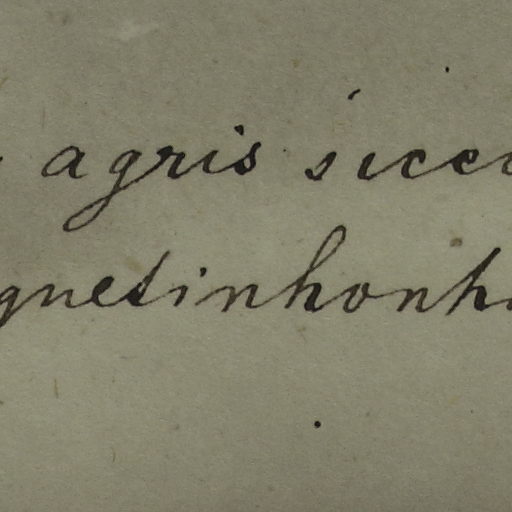 agris sicc
gnetinhonh